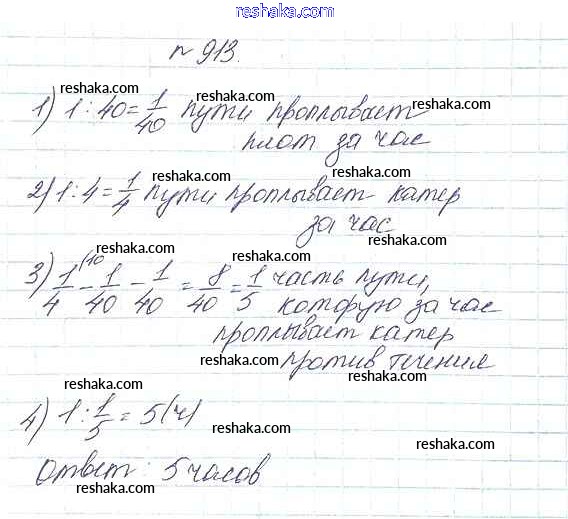 www.reshaka.com
№ 913.
reshaka.com
reshaka.com
reshaka.com
1) 1 : 40 = 1/40 пути проплывает
плот за час
reshaka.com
reshaka.com
2) 1 : 4 = 1/4 пути проплывает катер
за час
reshaka.com
reshaka.com
3) 1/4 (10 - 1/40 - 1/40 = 8/40 = 1/5 часть пути,
которую за час
проплывает катер
против течения
reshaka.com
reshaka.com
reshaka.com
4) 1 : 1/5 = 5 (ч)
reshaka.com
reshaka.com
Ответ: 5 часов
reshaka.com